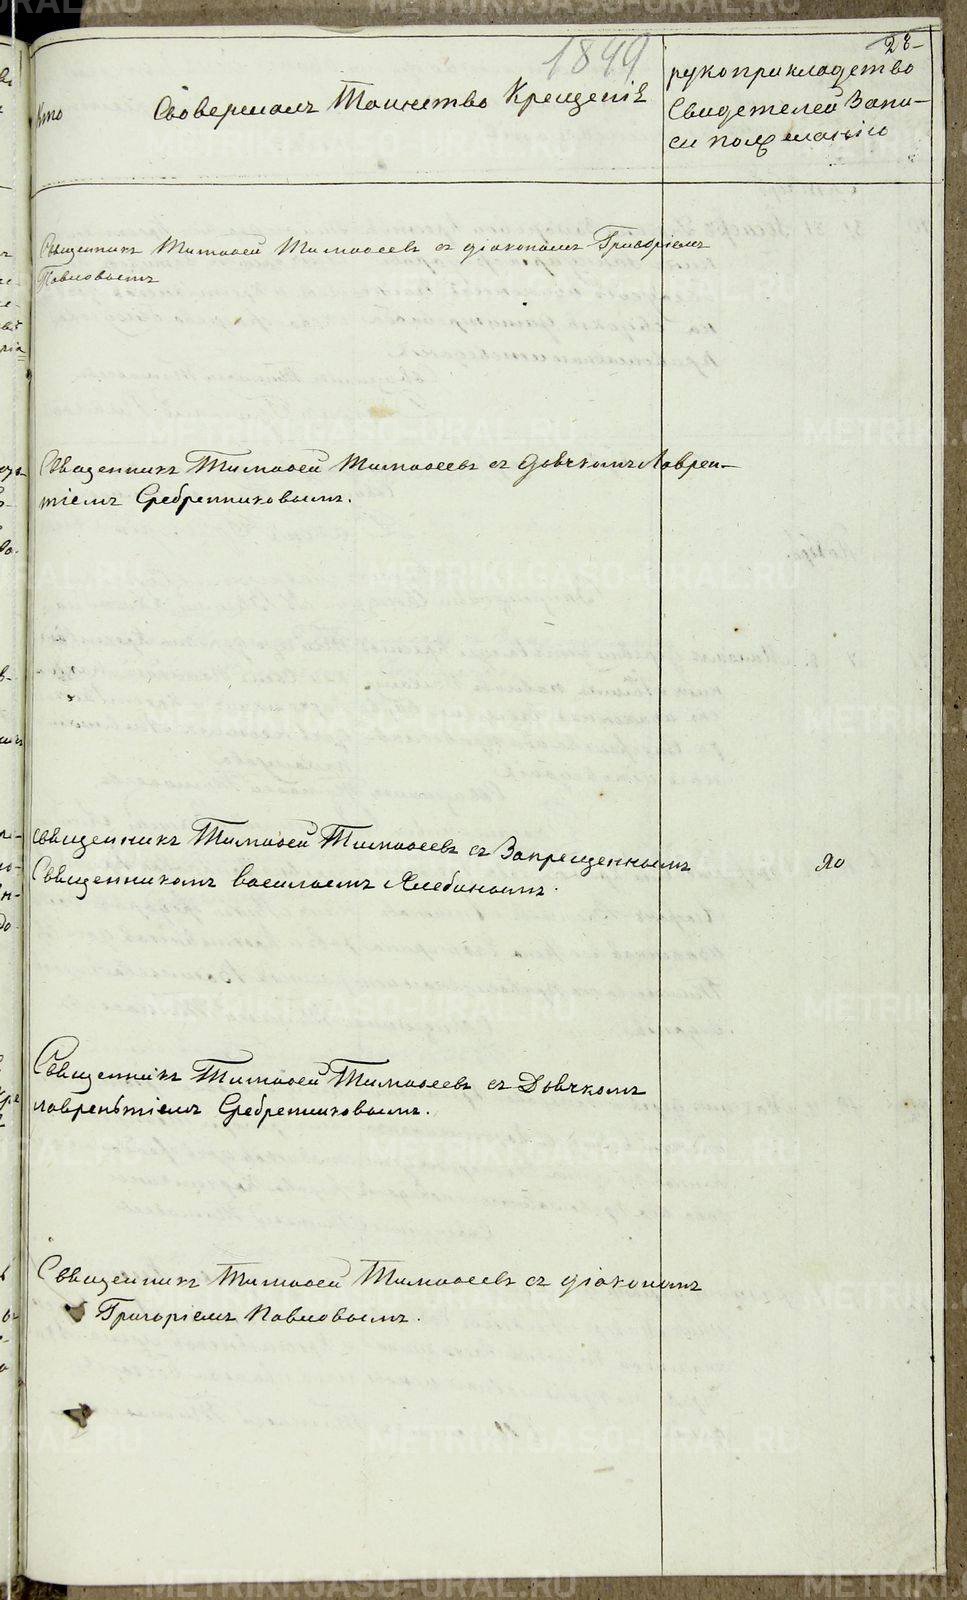 1849
28
Кто Совершалъ Таинство Крещенія
рукоприкладство
Свидетелей Запи-
си пожеланію
Священникъ Тимофей Тимофеевъ съ діакономъ Григоріемъ
Павловымъ
Священникъ Тимофей Тимофеевъ съ дьячкомъ Лаврен-
тіемъ Сребренниковымъ.
Священникъ Тимофей Тимофеевъ съ Запрещеннымъ
Священникомъ василіемъ Хлебинымъ.
Священникъ Тимофей Тимофеевъ съ Дьячкомъ
лаврентіемъ Сребренниковымъ.
Священникъ Тимофей Тимофеевъ съ діакономъ
Григоріемъ Павловымъ.
METRIKI.GASO-URAL.RU